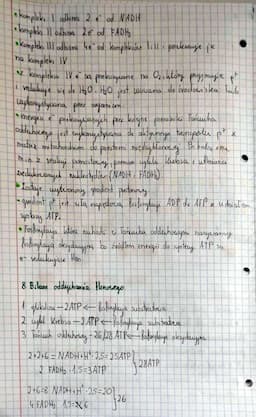 • kompleks I odbiera 2 e⁻ od NADH
• kompleks II odbiera 2e⁻ od FADH₂
• kompleks III odbiera 4e⁻ od kompleksów I i II i przekazuje je
na kompleks IV
• z kompleksu IV e⁻ są przekazywane na O₂, który przyjmuje p⁺
i redukuje się do H₂O. H₂O jest usuwana do środowiska lub
wykorzystywana przez organizm.
• energia e⁻ przekazywanych przez kolejne przenośniki łańcucha
oddechowego jest wykorzystywana do aktywnego transportu p⁺ z
matrix mitochondrium do przestrzeni międzybłonowej.
m.in. z reakcji pomostowej, cyklu Krebsa i
zredukowanych (NADH i FADH₂)
gradient protonowy
• gradient p⁺ jest siłą napędową fosforylacji ADP do ATP z udziałem
syntazy ATP.
• Fosforylacja która zachodzi w łańcuchu oddechowym nazywamy
fosforylacją oksydacyjną bo źródłem energii do syntezy ATP są
e⁻
8. Bilans oddychania tlenowego
1. glikoliza – 2ATP ← fosforylacja substratowa
2. cykl Krebsa – 2ATP ← fosforylacja substratowa
3. łańcuch oddechowy – 26/28 ATP ← fosforylacja oksydacyjna
2+2+6 = NADH+H⁺ · 2,5 = 25ATP
2 FADH₂ · 1,5 = 3ATP
28ATP
2+6=8 NADH+H⁺ · 2,5 = 20
4 FADH₂ · 1,5 = 6
26